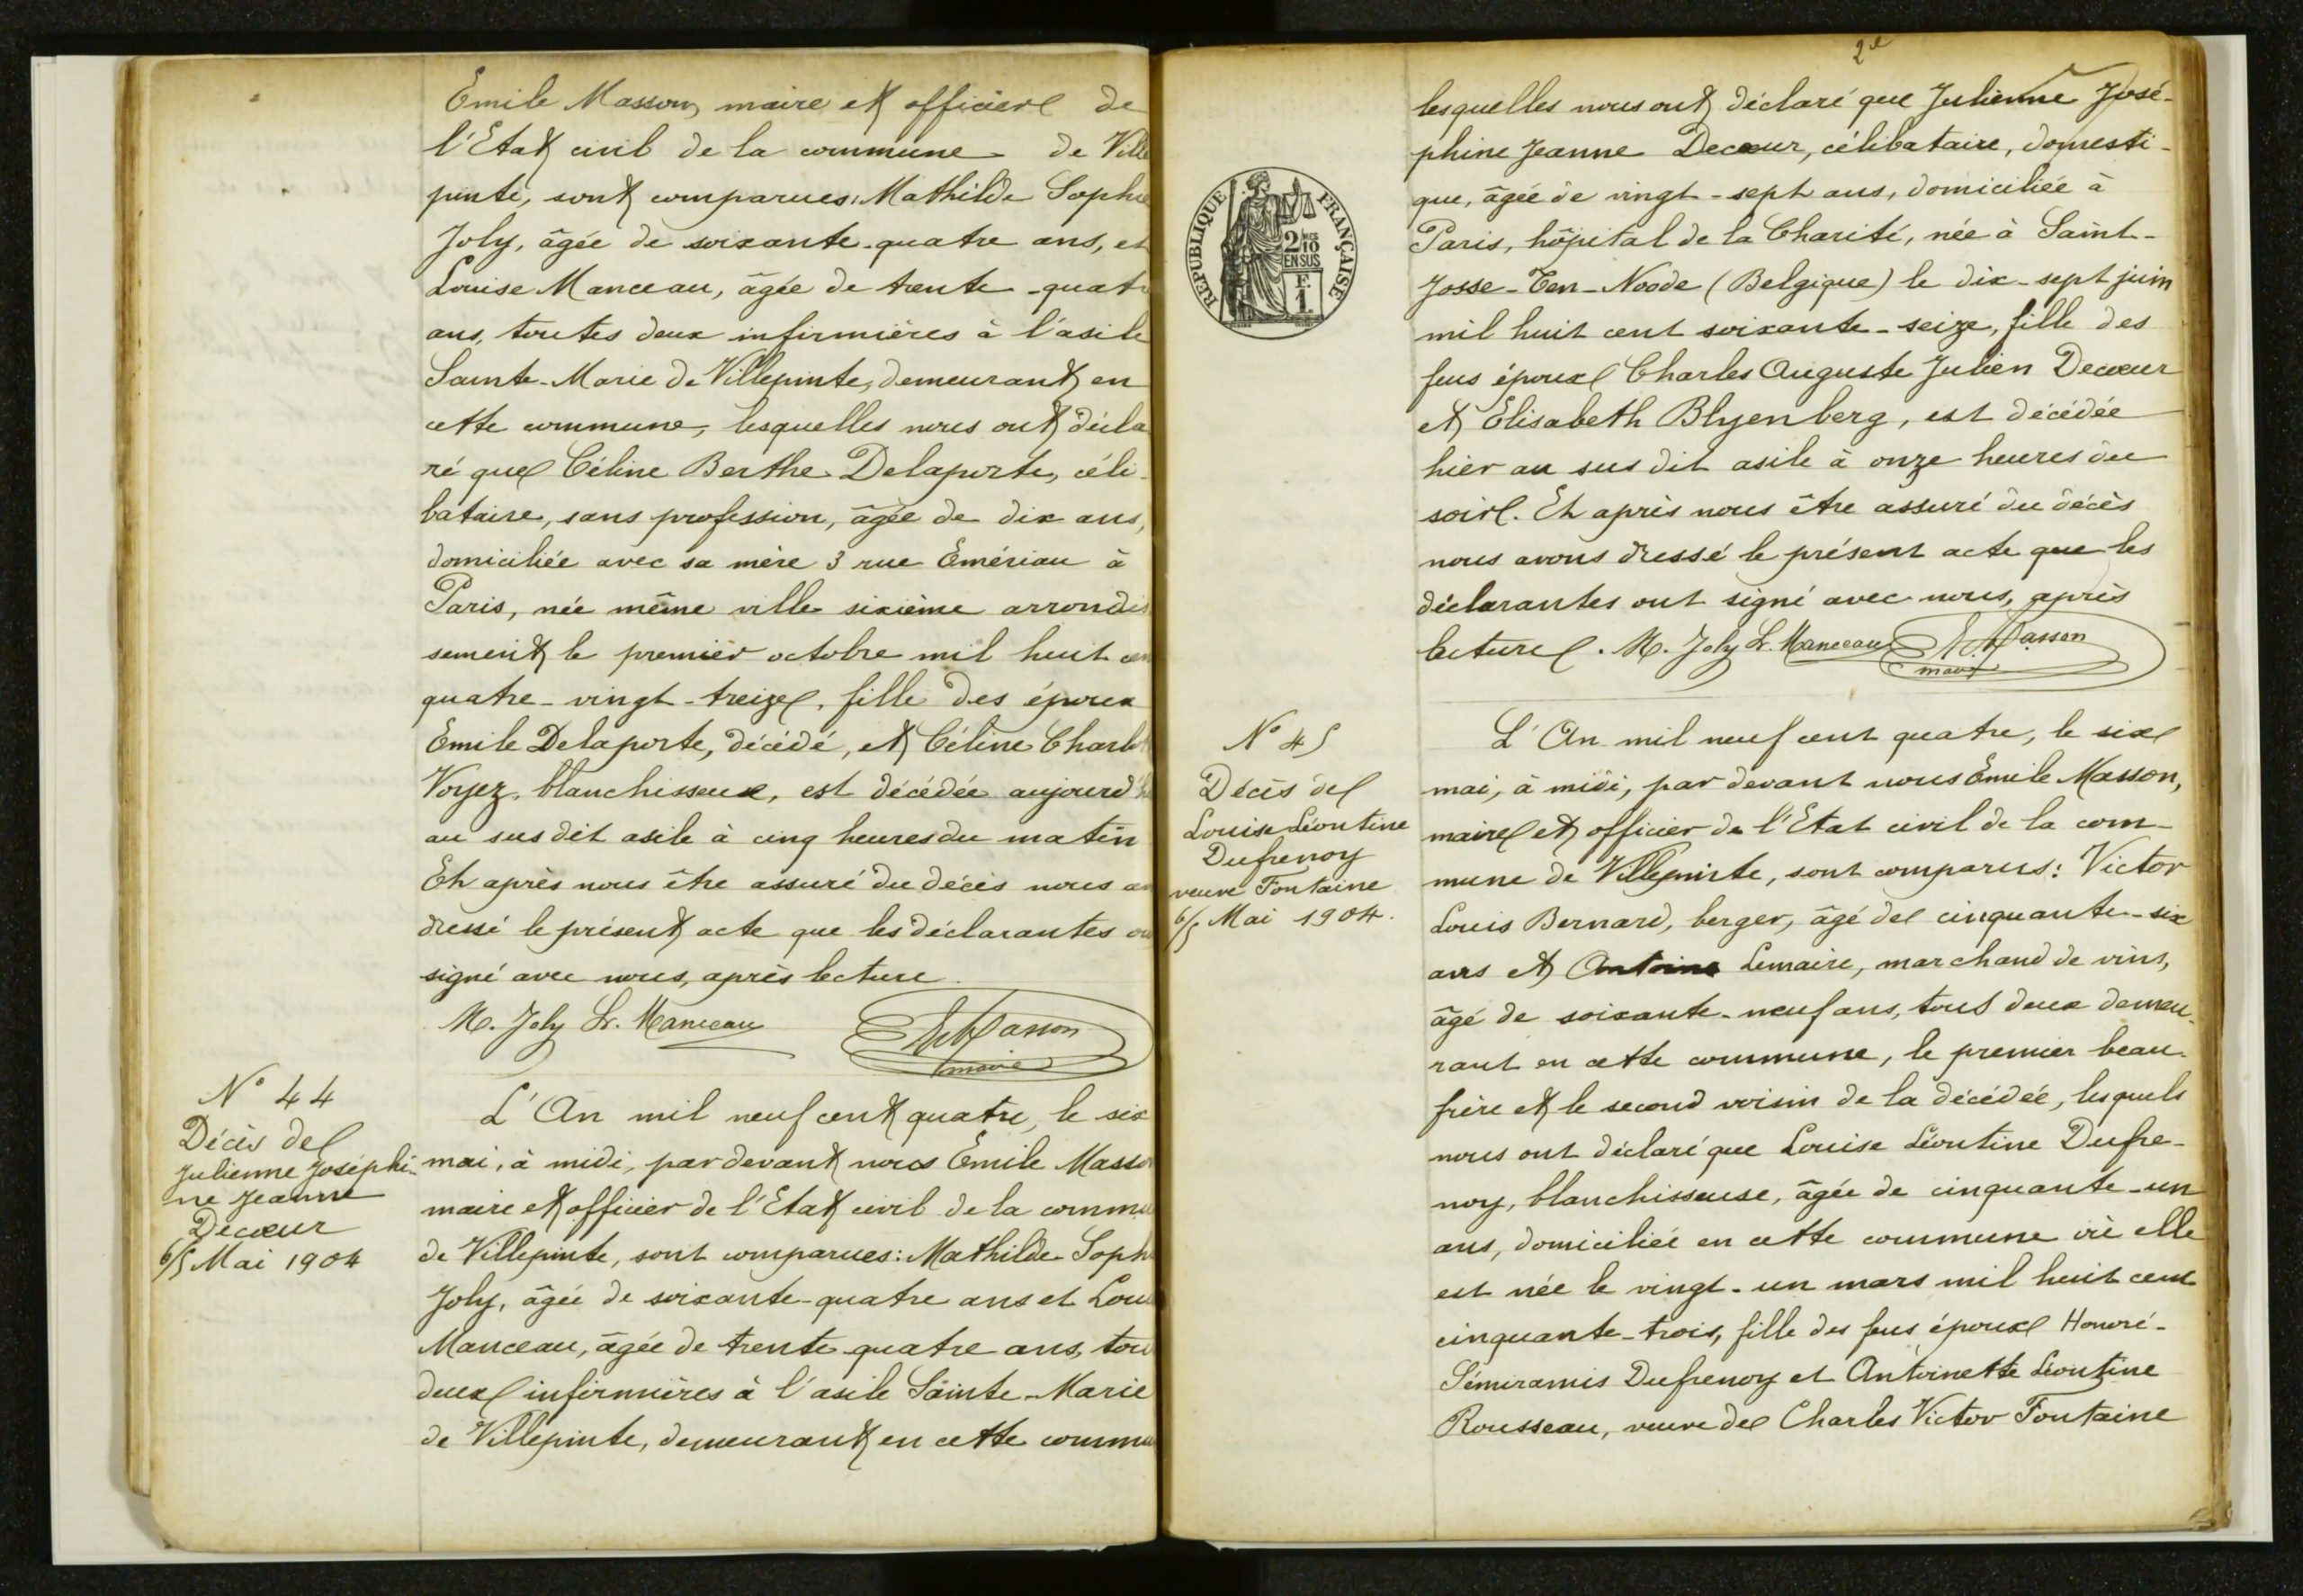 Emile Masson, maire et officier de
l'Etat civil de la commune de Ville
pinte, sont comparues: Mathilde Sophie
Joly, âgée de soixante-quatre ans, et
Louise Manceau, âgée de trente-quatre
ans, toutes deux infirmières à l'asile
Sainte-Marie de Villepinte, demeurant en
cette commune, lesquelles nous ont décla
ré que Céline Berthe Delaporte, céli-
bataire, sans profession, âgée de dix ans,
domiciliée avec sa mère 3 rue Emériau à
Paris, née même ville sixième arrondis
sement le premier octobre mil huit cen
quatre-vingt-treize, fille des époux
Emile Delaporte, décédé, et Céline Charlot
Voyez, blanchisseuse, est décédée aujourd'hu
au sus dit asile à cinq heures du matin
Et après nous être assuré du décès nous av
dressé le présent acte que les déclarantes on
signé avec nous, après lecture.
M. Joly Lse Manceau E Masson
maire
N° 44
Décès de
Julienne Joséphi-
ne Jeanne
Decœur
6/5 Mai 1904
L'An mil neuf cent quatre, le six
mai, à midi, par devant nous Emile Masson
maire et officier de l'Etat civil de la commu
de Villepinte, sont comparues: Mathilde Soph
Joly, âgée de soixante-quatre ans et Loui
Manceau, âgée de trente-quatre ans, tou
deux infirmières à l'asile Sainte-Marie
de Villepinte, demeurant en cette commu
2e
lesquelles nous ont déclaré que Julienne José-
phine Jeanne Decœur, célibataire, domesti-
que, âgée de vingt-sept ans, domiciliée à
Paris, hôpital de la Charité, née à Saint-
Josse-Ten-Noode (Belgique) le dix-sept juin
mil huit cent soixante-seize, fille des
feus époux Charles Auguste Julien Decœur
et Elisabeth Blyenberg, est décédée
hier au sus dit asile à onze heures du
soir. Et après nous être assuré du décès
nous avons dressé le présent acte que les
déclarantes ont signé avec nous, après
lecture. M. Joly Lse Manceau E Masson
maire
RÉPUBLIQUE FRANÇAISE
2/10 EN SUS
F. 1
N° 45
Décès de
Louise Léontine
Dufrenoy
veuve Fontaine
6/5 Mai 1904.
L'An mil neuf cent quatre, le six
mai, à midi, par devant nous Emile Masson,
maire et officier de l'Etat civil de la com-
mune de Villepinte, sont comparus: Victor
Louis Bernard, berger, âgé de cinquante-six
ans et Antoine Lemaire, marchand de vins,
âgé de soixante-neuf ans, tous deux demeu-
rant en cette commune, le premier beau-
frère et le second voisin de la décédée, lesquels
nous ont déclaré que Louise Léontine Dufre-
noy, blanchisseuse, âgée de cinquante-un
ans, domiciliée en cette commune où elle
est née le vingt-un mars mil huit cent
cinquante-trois, fille des feus époux Honoré-
Sémiramis Dufrenoy et Antoinette Léontine
Rousseau, veuve de Charles Victor Fontaine